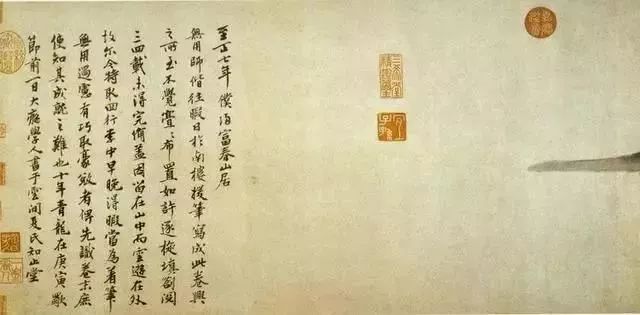 至正七年僕歸富春山居
無用師偕往暇日於南樓援筆寫成此卷興
之所至不覺亹〻布置如許逐旋填劄閱
三四載未得完備蓋因留在山中而雲遊在外
故爾今特取回行李中早晚得暇當為着筆
無用過慮有巧取豪敓者俾先識卷末庶
使知其成就之難也十年青龍在庚寅歜
節前一日大癡學人書于雲間夏氏知止堂
三希堂
精鑑璽
宜
子孫